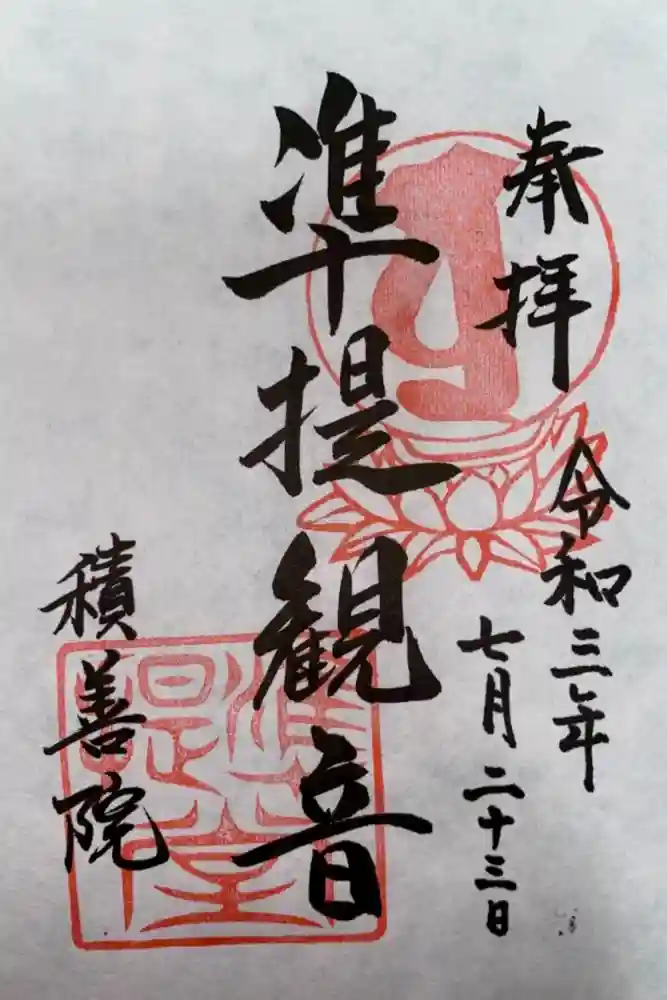 奉拝
令和三年
七月二十三日
準提観音
積善院
準提堂